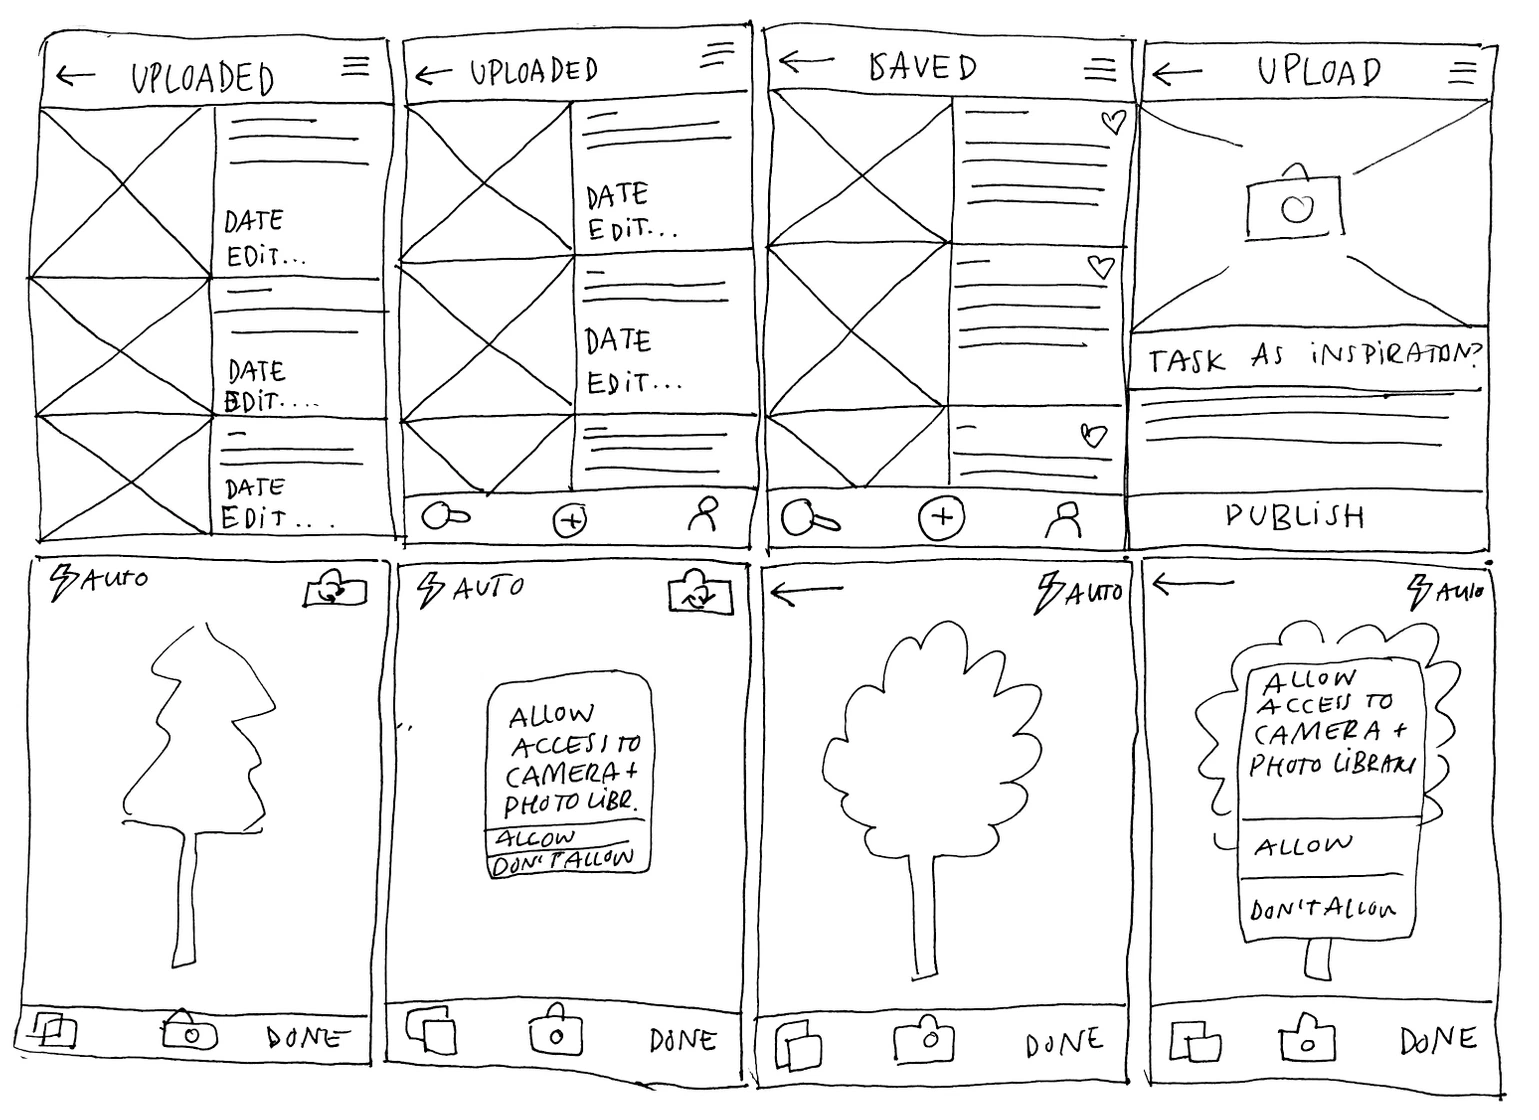 UPLOADED
DATE
EDIT...
DATE
EDIT....
DATE
EDIT...
UPLOADED
DATE
EDIT...
DATE
EDIT...
SAVED
UPLOAD
TASK AS INSPIRATON?
PUBLISH
AUTO
DONE
AUTO
ALLOW
ACCESS TO
CAMERA +
PHOTO LIBR.
ALLOW
DON'T ALLOW
DONE
AUTO
DONE
AUTO
ALLOW
ACCESS TO
CAMERA +
PHOTO LIBRARY
ALLOW
DON'T ALLOW
DONE